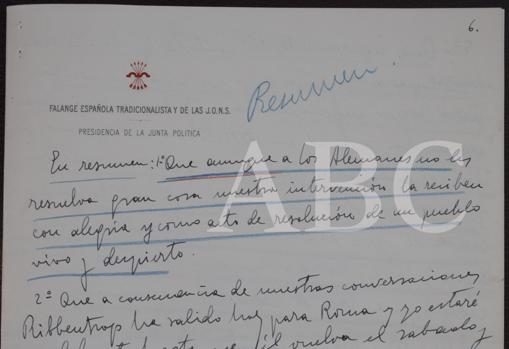 6.
Resumen.
FALANGE ESPAÑOLA TRADICIONALISTA Y DE LAS J.O.N.S.
PRESIDENCIA DE LA JUNTA POLÍTICA
ABC
En resumen: 1º Que aunque a los Alemanes no les
resuelva gran cosa nuestra intervención la reciben
con alegria y como acto de resolución de un pueblo
vivo y despierto.
2º Que a consecuencia de nuestras conversaciones
Ribbentrop ha salido hoy para Roma y yo estaré
vuelva el sabado y